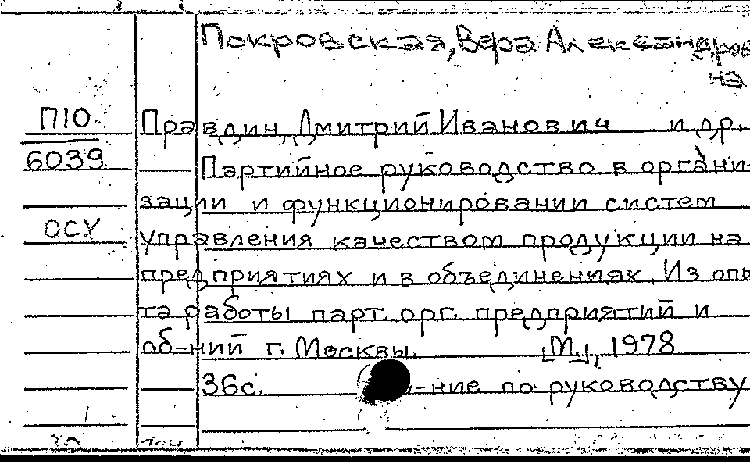 Покровская, Вера Александров
на
П10
6039
ОСУ
Правдин, Дмитрий Иванович и др.
Партийное руководство в органи-
зации и функционировании систем
управления качеством продукции на
предприятиях и в объединениях. Из опы
та работы парт. орг. предприятий и
об-ний г. Москвы. [М.], 1978
36с. -ние по руководству